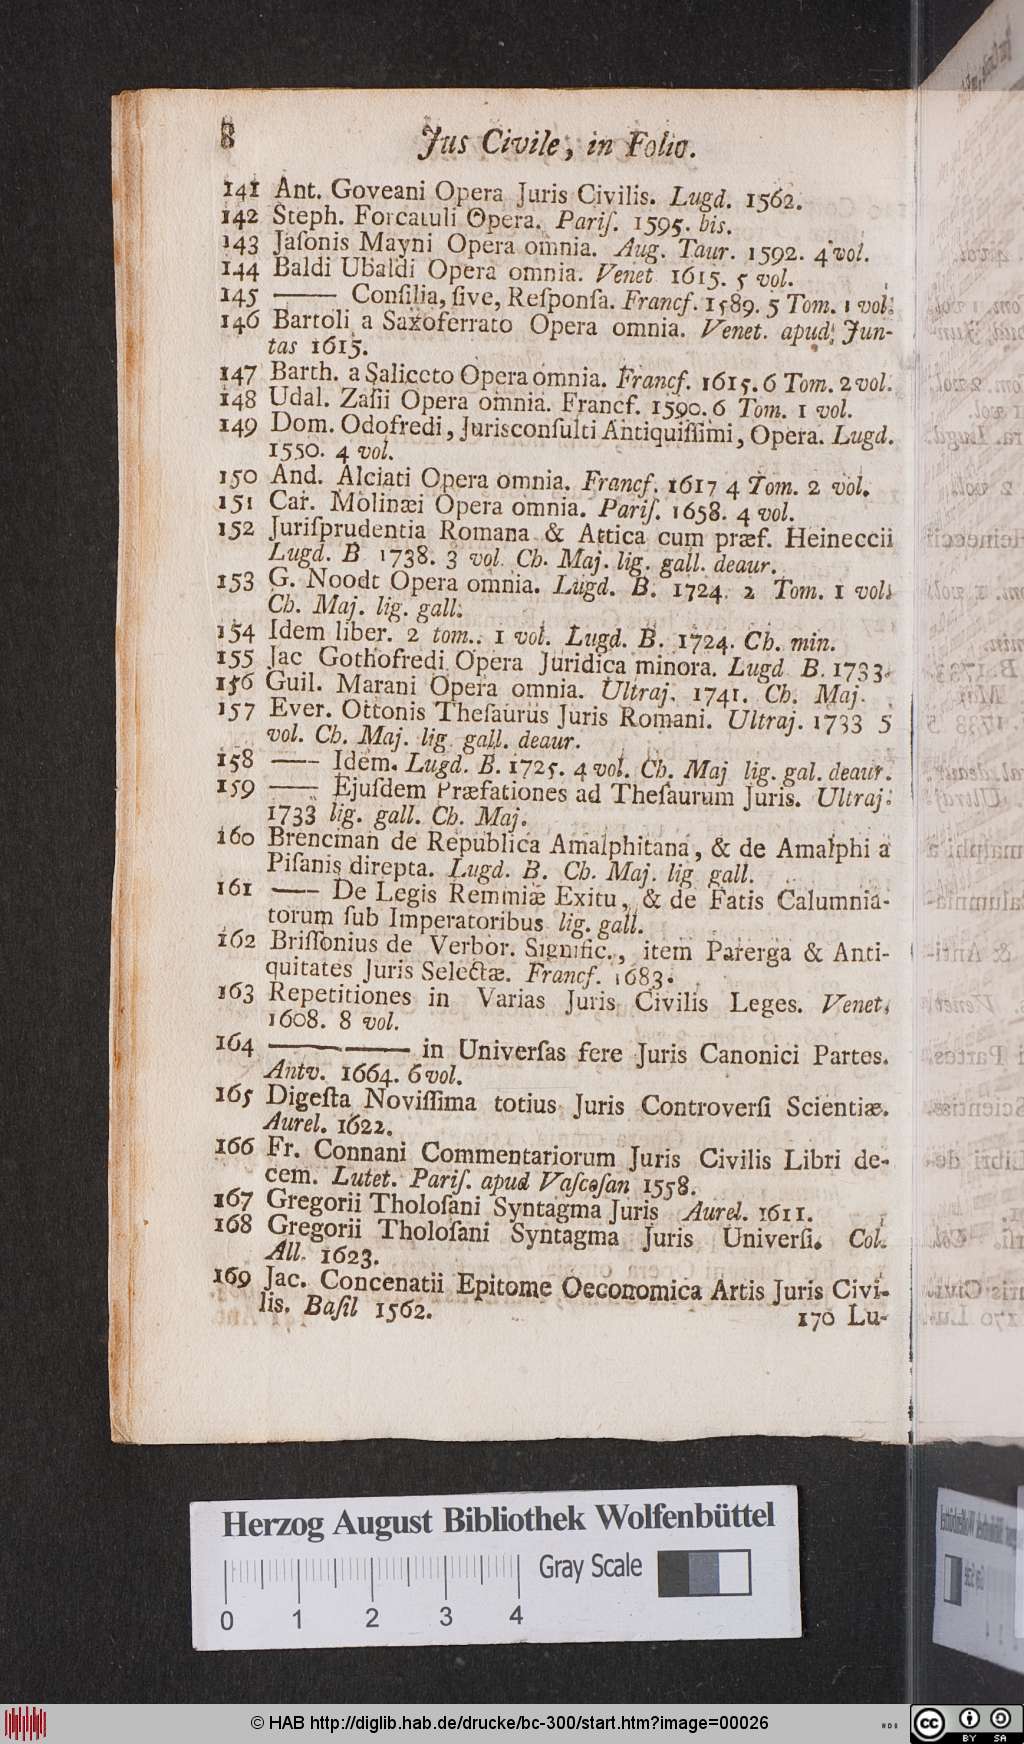 8
Jus Civile, in Folio.
141 Ant. Goveani Opera Juris Civilis. Lugd. 1562.
142 Steph. Forcatuli Opera. Pariſ. 1595. bis.
143 Jaſonis Mayni Opera omnia. Aug. Taur. 1592. 4 vol.
144 Baldi Ubaldi Opera omnia. Venet 1615. 5 vol.
145 —— Conſilia, ſive, Reſponſa. Francf. 1589. 5 Tom. 1 vol.
146 Bartoli a Saxoferrato Opera omnia. Venet. apud Jun-
tas 1615.
147 Barth. a Saliceto Opera omnia. Francf. 1615. 6 Tom. 2 vol.
148 Udal. Zaſii Opera omnia. Francf. 1590. 6 Tom. 1 vol.
149 Dom. Odofredi, Jurisconſulti Antiquiſſimi, Opera. Lugd.
1550. 4 vol.
150 And. Alciati Opera omnia. Francf. 1617 4 Tom. 2 vol.
151 Car. Molinæi Opera omnia. Pariſ. 1658. 4 vol.
152 Juriſprudentia Romana & Attica cum præf. Heineccii
Lugd. B 1738. 3 vol. Ch. Maj. lig. gall. deaur.
153 G. Noodt Opera omnia. Lugd. B. 1724. 2 Tom. 1 vol.
Ch. Maj. lig. gall.
154 Idem liber. 2 tom.. 1 vol. Lugd. B. 1724. Ch. min.
155 Jac Gothofredi Opera Juridica minora. Lugd B. 1733.
156 Guil. Marani Opera omnia. Ultraj. 1741. Ch. Maj.
157 Ever. Ottonis Theſaurus Juris Romani. Ultraj. 1733 5
vol. Ch. Maj. lig. gall. deaur.
158 —— Idem. Lugd. B. 1725. 4 vol. Ch. Maj lig. gal. deaur.
159 —— Ejuſdem Præfationes ad Theſaurum Juris. Ultraj.
1733 lig. gall. Ch. Maj.
160 Brencman de Republica Amalphitana, & de Amalphi a
Piſanis direpta. Lugd. B. Ch. Maj. lig gall.
161 —— De Legis Remmiæ Exitu, & de Fatis Calumnia-
torum ſub Imperatoribus lig. gall.
162 Briſſonius de Verbor. Signific., item Parerga & Anti-
quitates Juris Selectæ. Francf. 1683.
163 Repetitiones in Varias Juris Civilis Leges. Venet.
1608. 8 vol.
164 —— —— in Univerſas fere Juris Canonici Partes.
Antv. 1664. 6 vol.
165 Digeſta Noviſſima totius Juris Controverſi Scientiæ.
Aurel. 1622.
166 Fr. Connani Commentariorum Juris Civilis Libri de-
cem. Lutet. Pariſ. apud Vaſcoſan 1558.
167 Gregorii Tholoſani Syntagma Juris Aurel. 1611.
168 Gregorii Tholoſani Syntagma Juris Univerſi. Col.
All. 1623.
169 Jac. Concenatii Epitome Oeconomica Artis Juris Civi-
lis. Baſil 1562.
170 Lu-
Herzog August Bibliothek Wolfenbüttel
Gray Scale
0 1 2 3 4
© HAB http://diglib.hab.de/drucke/bc-300/start.htm?image=00026
cc BY SA